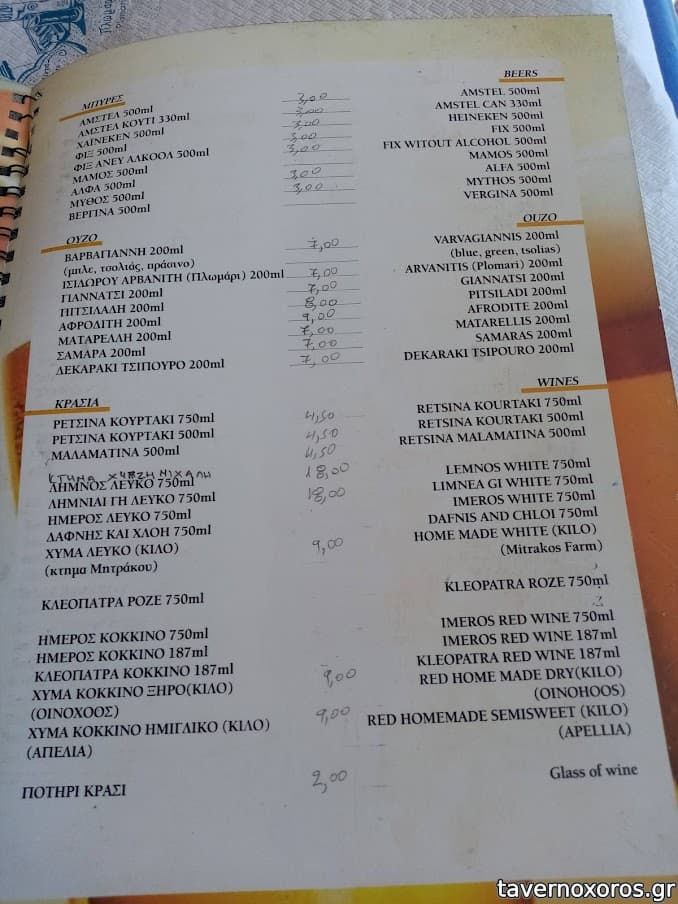 ΜΠΥΡΕΣ BEERS
ΑΜΣΤΕΛ 500ml 3,00 AMSTEL 500ml
ΑΜΣΤΕΛ ΚΟΥΤΙ 330ml 3,00 AMSTEL CAN 330ml
ΧΑΪΝΕΚΕΝ 500ml 3,00 HEINEKEN 500ml
ΦΙΞ 500ml 3,00 FIX 500ml
ΦΙΞ ΑΝΕΥ ΑΛΚΟΟΛ 500ml 3,00 FIX WITOUT ALCOHOL 500ml
ΜΑΜΟΣ 500ml MAMOS 500ml
ΑΛΦΑ 500ml 3,00 ALFA 500ml
ΜΥΘΟΣ 500ml 3,00 MYTHOS 500ml
ΒΕΡΓΙΝΑ 500ml VERGINA 500ml
ΟΥΖΟ OUZO
ΒΑΡΒΑΓΙΑΝΝΗ 200ml 7,00 VARVAGIANNIS 200ml
(μπλε, τσολιάς, πράσινο) (blue, green, tsolias)
ΙΣΙΔΩΡΟΥ ΑΡΒΑΝΙΤΗ (Πλωμάρι) 200ml 7,00 ARVANITIS (Plomari) 200ml
ΓΙΑΝΝΑΤΣΙ 200ml 7,00 GIANNATSI 200ml
ΠΙΤΣΙΛΑΔΗ 200ml 8,00 PITSILADI 200ml
ΑΦΡΟΔΙΤΗ 200ml 9,00 AFRODITE 200ml
ΜΑΤΑΡΕΛΛΗ 200ml 7,00 MATARELLIS 200ml
ΣΑΜΑΡΑ 200ml 7,00 SAMARAS 200ml
ΔΕΚΑΡΑΚΙ ΤΣΙΠΟΥΡΟ 200ml 7,00 DEKARAKI TSIPOURO 200ml
ΚΡΑΣΙΑ WINES
ΡΕΤΣΙΝΑ ΚΟΥΡΤΑΚΙ 750ml 4,50 RETSINA KOURTAKI 750ml
ΡΕΤΣΙΝΑ ΚΟΥΡΤΑΚΙ 500ml 4,50 RETSINA KOURTAKI 500ml
ΜΑΛΑΜΑΤΙΝΑ 500ml 4,50 RETSINA MALAMATINA 500ml
ΚΤΗΜΑ 18,00
ΛΗΜΝΟΣ ΛΕΥΚΟ 750ml LEMNOS WHITE 750ml
ΛΗΜΝΙΑΙ ΓΗ ΛΕΥΚΟ 750ml 18,00 LIMNEA GI WHITE 750ml
ΗΜΕΡΟΣ ΛΕΥΚΟ 750ml IMEROS WHITE 750ml
ΔΑΦΝΗΣ ΚΑΙ ΧΛΟΗ 750ml DAFNIS AND CHLOI 750ml
ΧΥΜΑ ΛΕΥΚΟ (ΚΙΛΟ) 9,00 HOME MADE WHITE (KILO)
(κτημα Μητράκου) (Mitrakos Farm)
ΚΛΕΟΠΑΤΡΑ ΡΟΖΕ 750ml KLEOPATRA ROZE 750ml
ΗΜΕΡΟΣ ΚΟΚΚΙΝΟ 750ml IMEROS RED WINE 750ml
ΗΜΕΡΟΣ ΚΟΚΚΙΝΟ 187ml IMEROS RED WINE 187ml
ΚΛΕΟΠΑΤΡΑ ΚΟΚΚΙΝΟ 187ml KLEOPATRA RED WINE 187ml
ΧΥΜΑ ΚΟΚΚΙΝΟ ΞΗΡΟ(ΚΙΛΟ) 9,00 RED HOME MADE DRY(KILO)
(ΟΙΝΟΧΟΟΣ) (OINOHOOS)
ΧΥΜΑ ΚΟΚΚΙΝΟ ΗΜΙΓΛΙΚΟ (ΚΙΛΟ) 9,00 RED HOMEMADE SEMISWEET (KILO)
(ΑΠΕΛΙΑ) (APELLIA)
ΠΟΤΗΡΙ ΚΡΑΣΙ 2,00 Glass of wine
tavernoxoros.gr